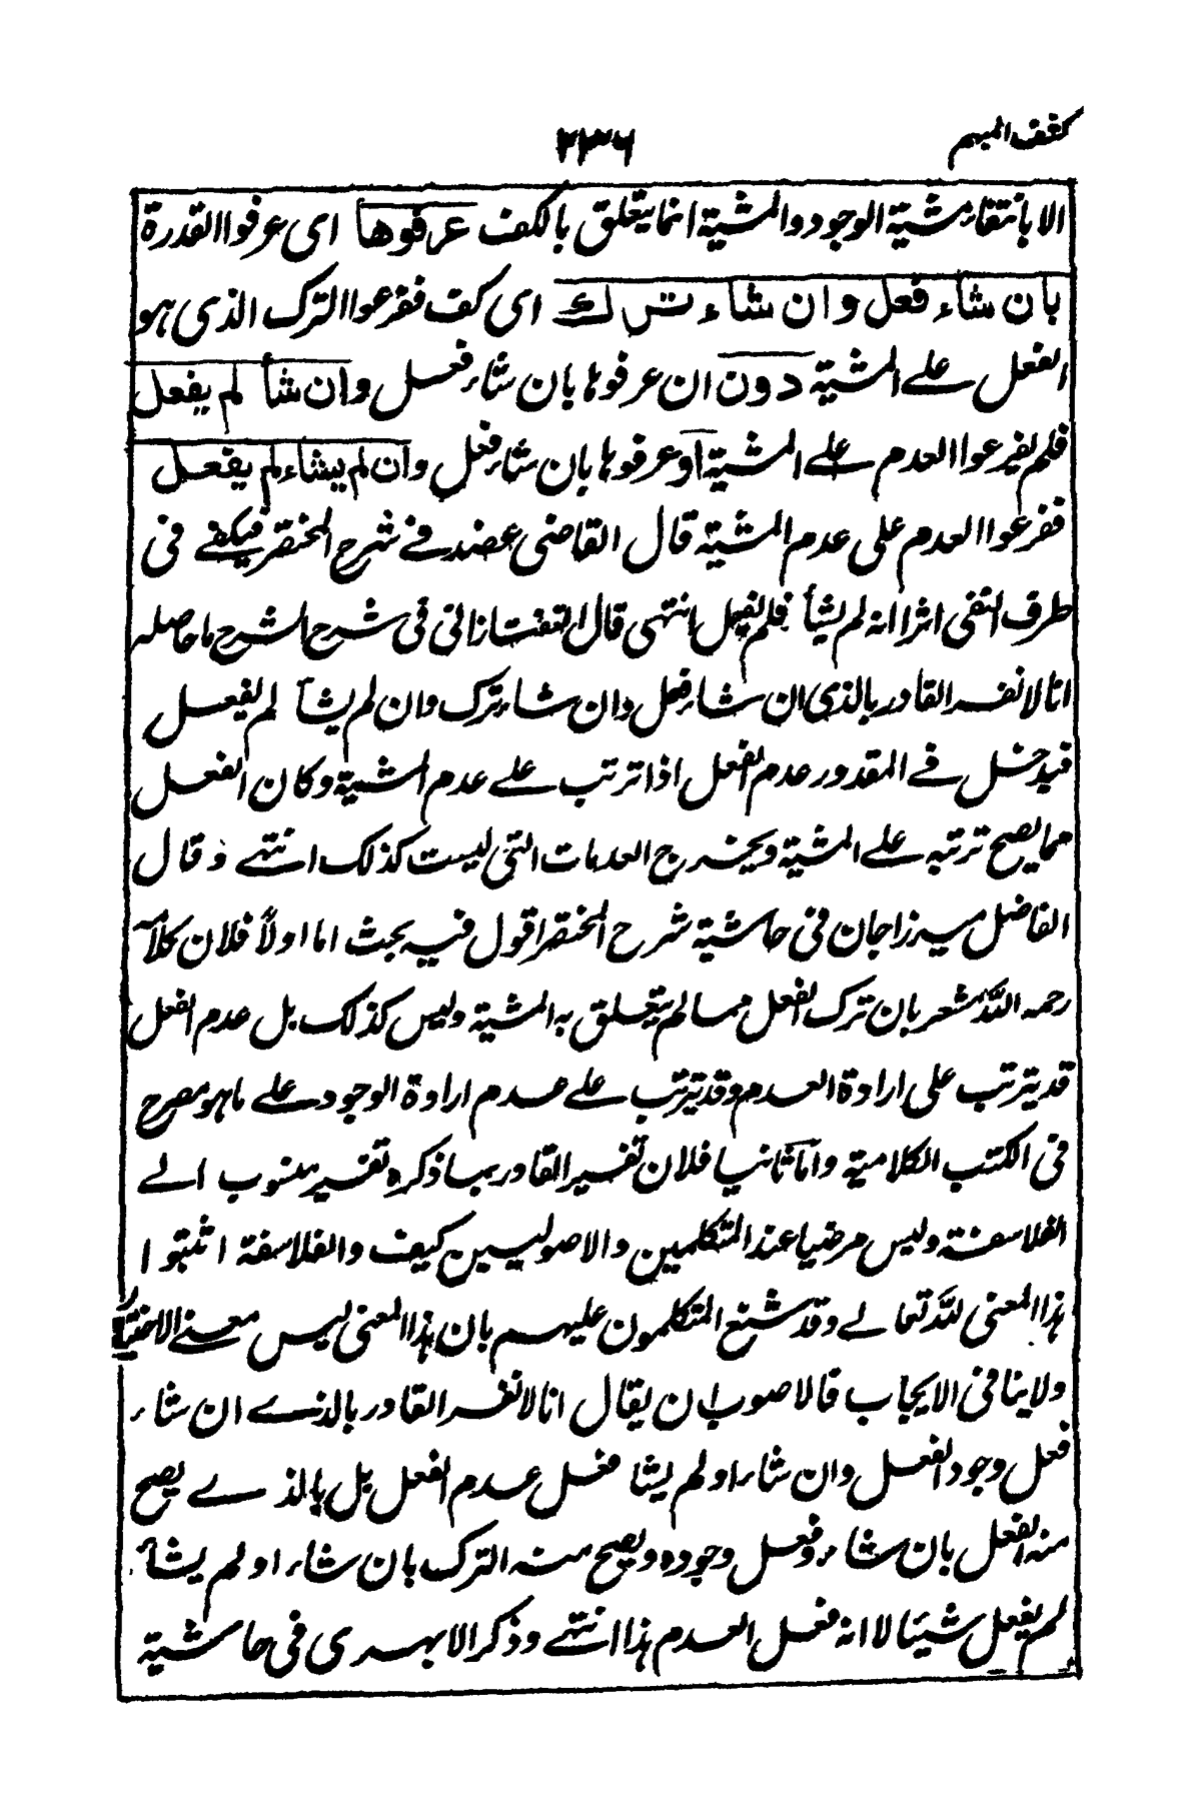 كشف المبهم
٢٣٦
الا بانتقاء مشية الوجود والمشية انما يتعلق بالكف عرفوها اى عرفوا القدرة
بان شاء فعل وان شاء ترك اى كف ففرعوا الترك الذى هو
الفعل على المشية دون ان عرفوها بان شاء فعل وان شأ لم يفعل
فلم يفرعوا العدم على المشية او عرفوها بان شاء فعل وان لم يشاء لم يفعل
ففرعوا العدم على عدم المشية قال القاضى عضد فى شرح المختصر فيكفى فى
طرف النفى اثرا انه لم يشأ فلم يفعل انتهى قال التفتازانى فى شرح الشرح ما حاصله
انا لا نفسر القادر بالذى ان شاء فعل وان شاء ترك وان لم يشأ لم يفعل
فيدخل فى المقدور عدم الفعل اذا ترتب على عدم المشية وكان الفعل
مما يصح ترتبه على المشية ويخرج العدمات التى ليست كذلك انتهى وقال
الفاضل ميرزا جان فى حاشية شرح المختصر اقول فيه بحث اما اولاً فلان كلامه
رحمه الله مشعر بان ترك الفعل مما لم يتعلق به المشية وليس كذلك بل عدم الفعل
قد يترتب على ارادة العدم وقد يترتب على عدم ارادة الوجود على ما هو مصرح
فى الكتب الكلامية واما ثانيا فلان تفسير القادر بما ذكره تفسير منسوب الى
الفلاسفة وليس مرضيا عند المتكلمين والاصوليين كيف والفلاسفة اثبتوا
هذا المعنى لله تعالى وقد شنع المتكلمون عليهم بان هذا المعنى ليس معنى الاختيار
ولا ينافى الايجاب فالاصوب ان يقال انا لا نفسر القادر بالذى ان شاء
فعل وجود الفعل وان شاء او لم يشا فعل عدم الفعل بل بالذى يصح
منه الفعل بان شاء وفعل وجوده ويصح منه الترك بان شاء او لم يشأ
لم يفعل شيئا لا انه فعل العدم هذا انتهى وذكر الابهرى فى حاشية